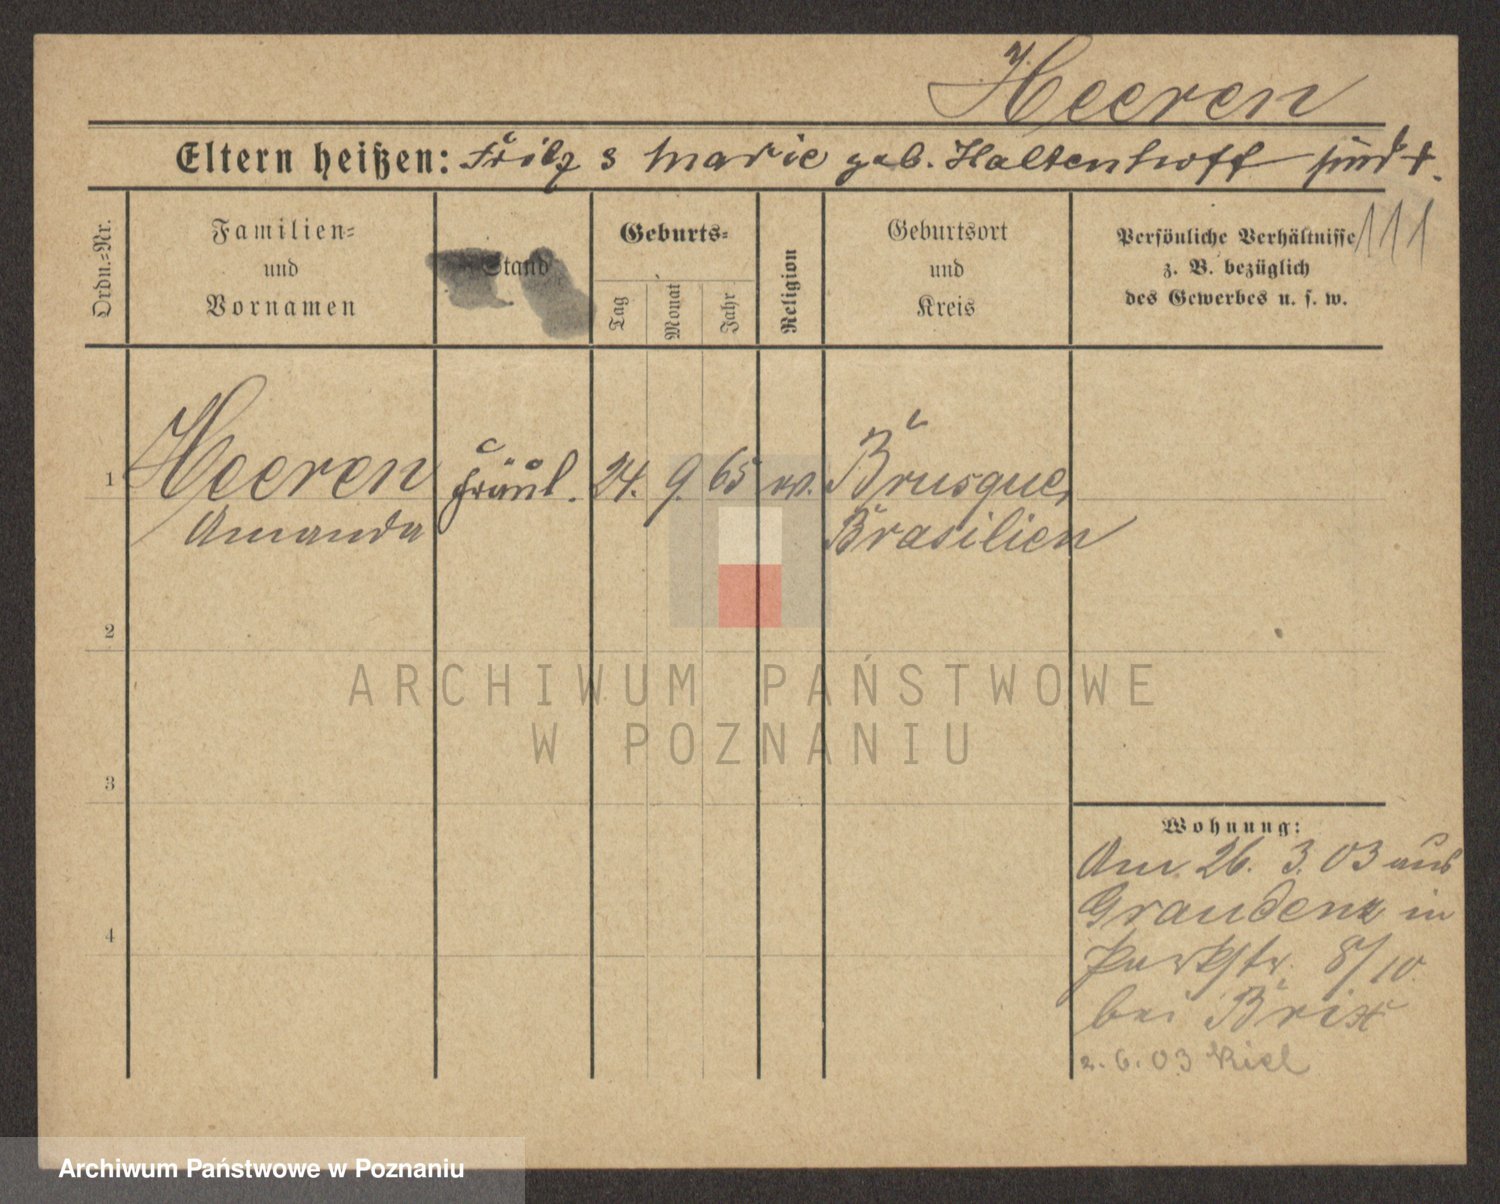 Heeren
Eltern heißen: Fritz & Marie geb. Haltenhoff sind †.
111
Ordn.-Nr.
Familien-
und
Vornamen
Stand
Geburts-
Tag
Monat
Jahr
Religion
Geburtsort
und
Kreis
Persönliche Verhältnisse
z. B. bezüglich
des Gewerbes u. s. w.
1 Heeren Fräul. 24. 9. 65 ev. Brusque,
Amanda Brasilien
2
3
4
Wohnung:
Am 26. 3. 03 aus
Graudenz in
Parkstr. 8/10.
bei Brix
2. 6. 03 Kiel
ARCHIWUM PAŃSTWOWE
W POZNANIU
Archiwum Państwowe w Poznaniu